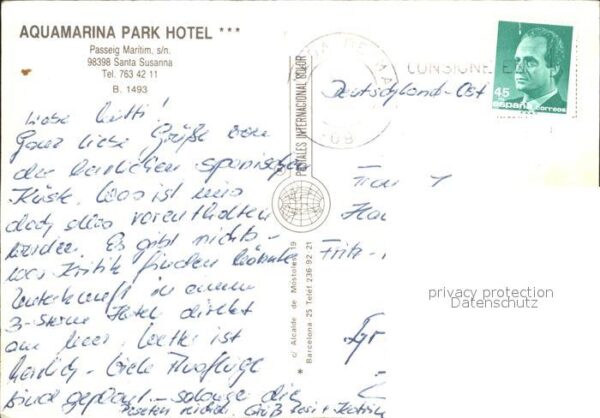 AQUAMARINA PARK HOTEL ***
Passeig Maritim. s/n.
98398 Santa Susanna
Tel. 763 42 11
B. 1493
CONSIGNE E
45
españa correos
POSTALES INTERNACIONAL COLOR
* c/ Alcalde de Mostoles, 19
Barcelona-25 Teléf. 236-92-21
Deutschland-Ost
Fritz-
privacy protection
Datenschutz
Liebe Mutti!
Ganz liebe Grüße von
der herrlichen spanischen
Küste. Was ist uns
doch alles vorenthalten
worden. Es gibt nichts
was Kritik finden könnte
Unterkunft in einem
3-Sterne Hotel direkt
am Meer. Wetter ist
herrlich - viele Ausflüge
sind geplant - solange die